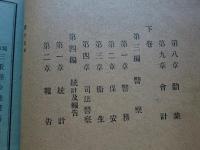 第八章 勸業
第九章 會計
下卷
第三編 警察
第一章 警務
第二章 保安
第三章 衛生
第四章 司法警察
第四編 統計及報告
第一章 統計
第二章 報告